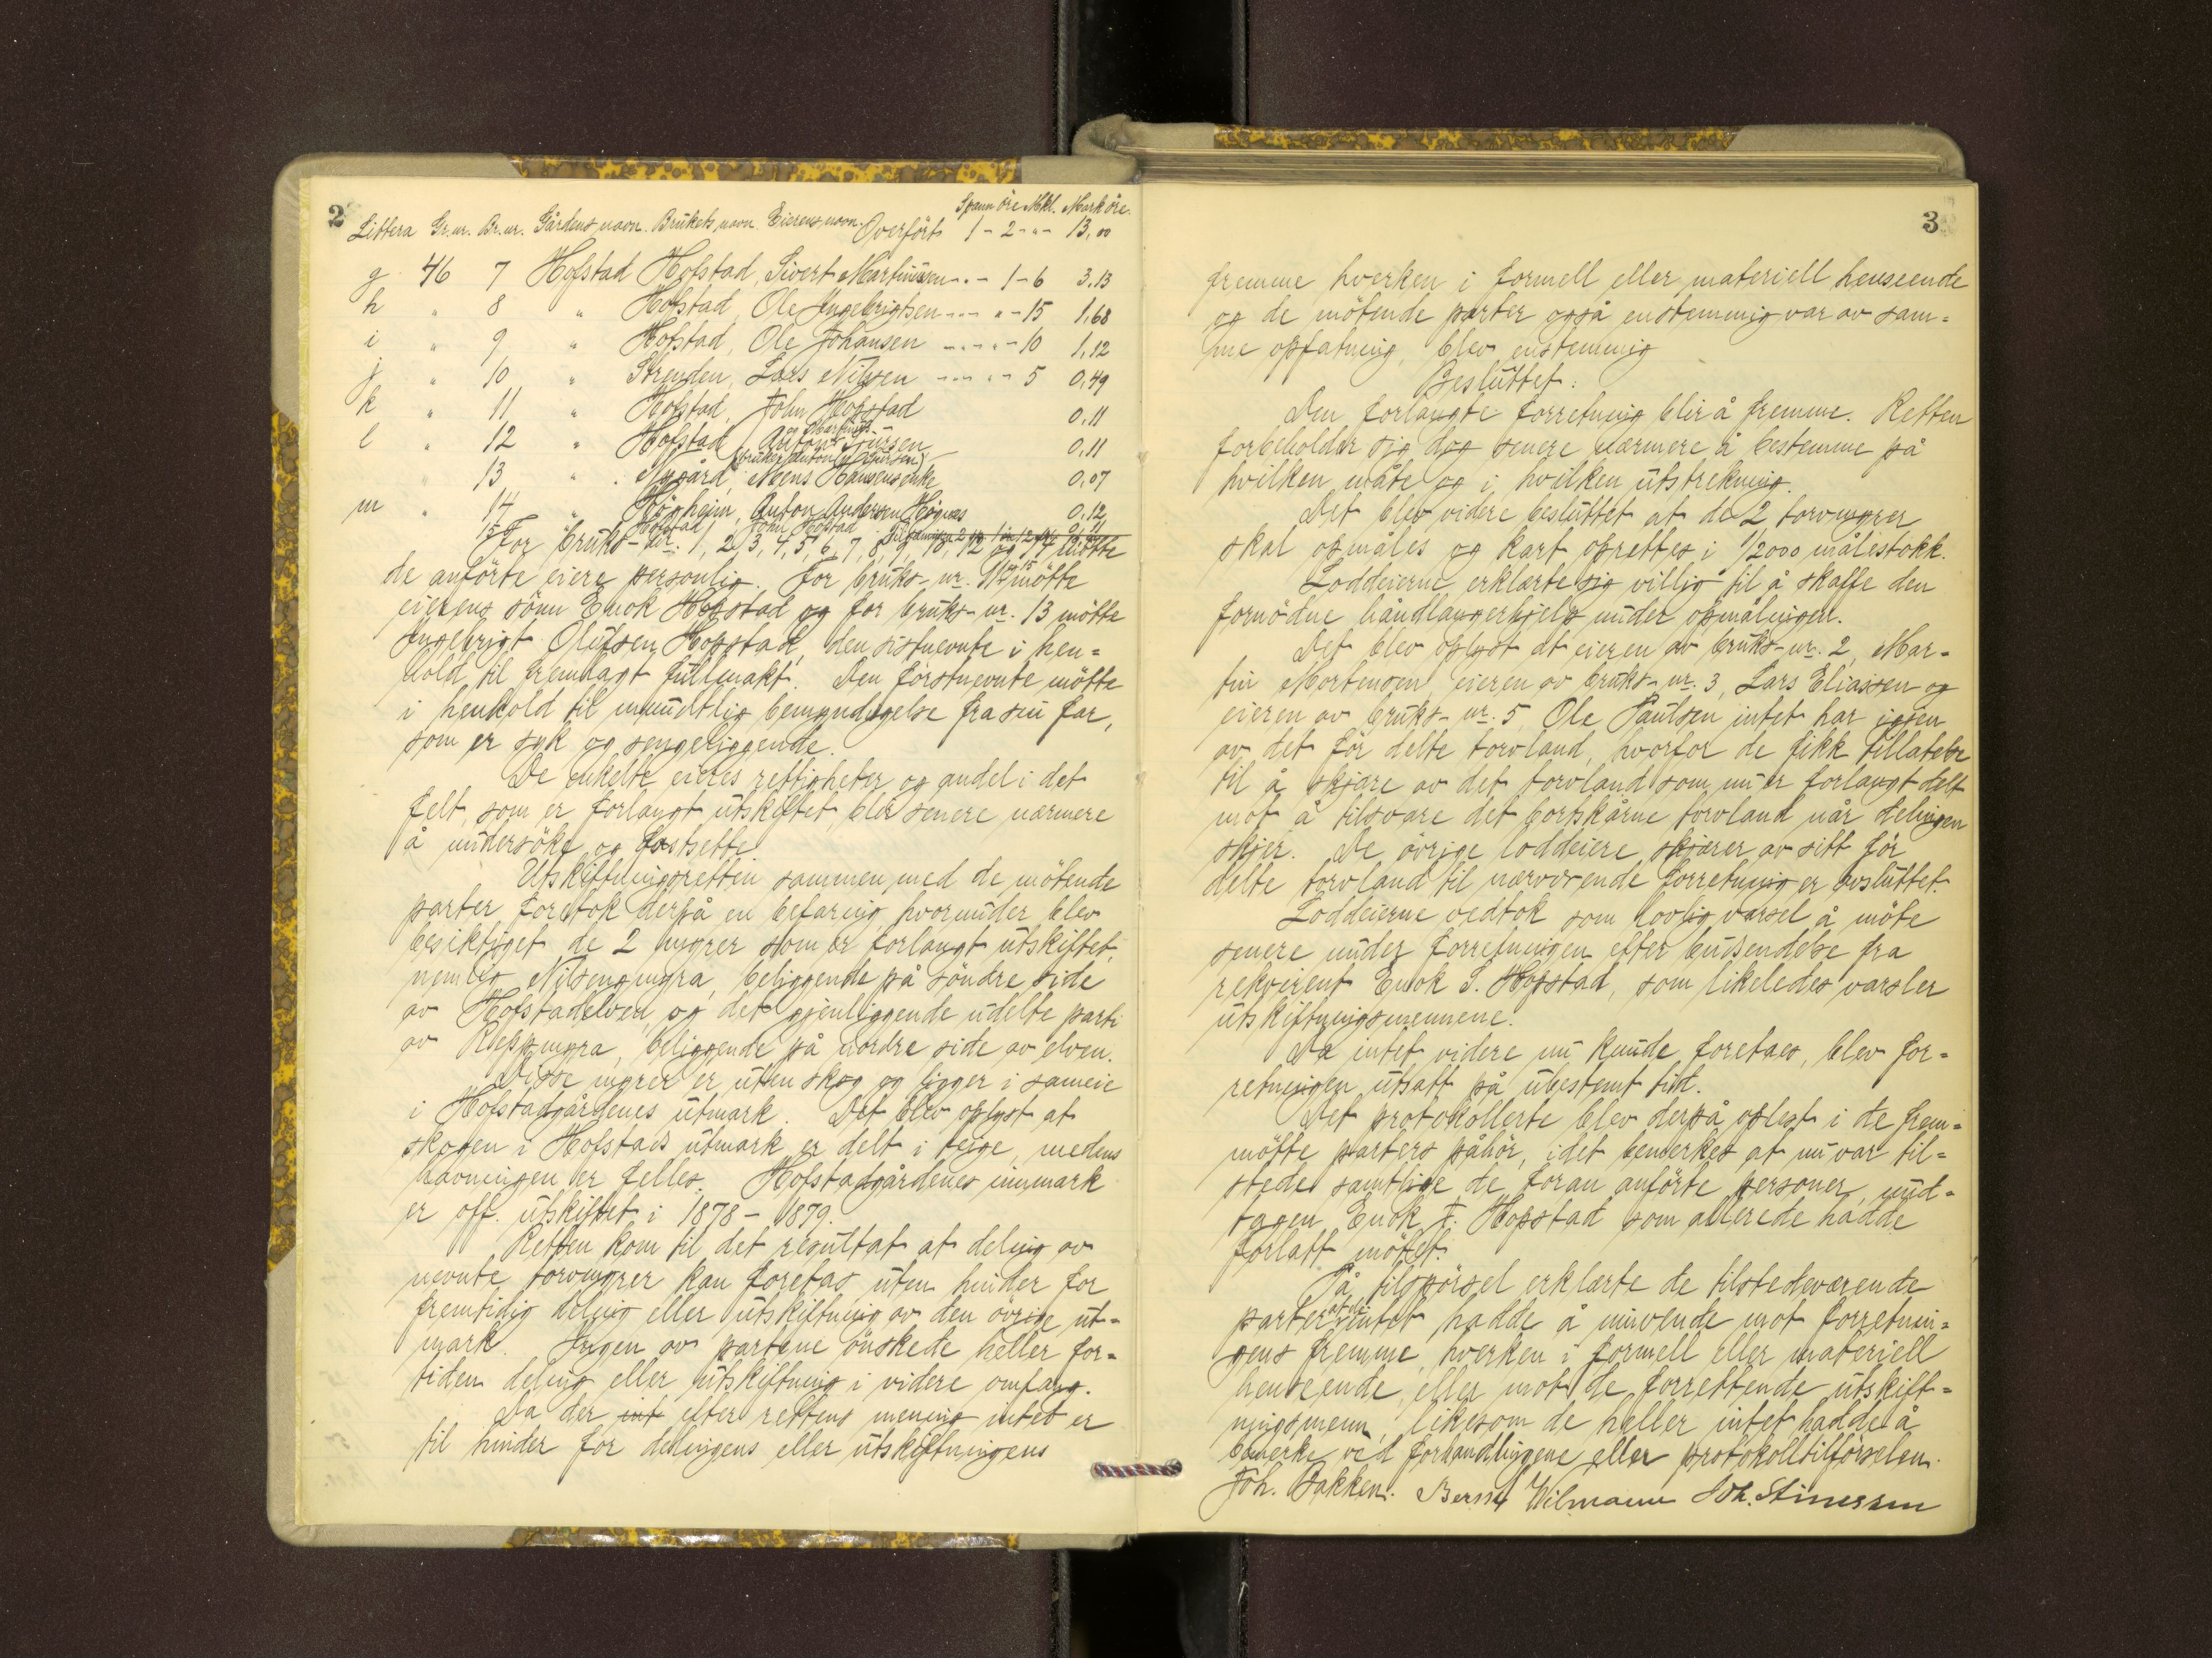 2
Spann öre Mkl. Mark öre.
Littera Gr.nr. Br.nr. Gårdens navn. Brukets navn. Eierens navn. Overført 1 - 2 - " - 13,00
g 46 7 Hofstad Hofstad, Sivert Martinussen - . - 1 - 6 3,13
h " 8 " Hofstad, Ole Ingebrigtsen - - - " - 15 1,68
i " 9 " Hofstad, Ole Johansen - - - " - 10 1,12
j " 10 " Strenden, Lars Nilsen - - - " - 5 0,49
k " 11 " Hofstad, John Hopstad 0,11
l " 12 " Hofstad, Anton 0,11
" 13 " Nygård, Mens Hansens enke 0,07
m " 14 " Högheim, Anton Andersen Högnes 0,12
15 Hofstad John Hofstad
For bruks-nr. 1, 2, 3, 4, 5, 6, 7, 8, 9, 10, 12 og 14 mötte
de anförte eiere personlig. For bruks-nr. 11 og 15 mötte
eierens sönn Enok Hopstad og for bruks-nr. 13 mötte
Ingebrigt Olufsen Hopstad, den sistnevnte i hen-
hold til fremlagt fullmakt. Den förstnevnte mötte
i henhold til mundtlig bemyndigelse fra sin far,
som er syk og sengeliggende.
De enkelte eieres rettigheter og andel i det
felt, som er forlangt utskiftet, blir senere nærmere
å undersöke og fastsette.
Utskiftningsretten sammen med de mötende
parter foretok derpå en befaring, hvorunder blev
besiktiget de 2 myrer som er forlangt utskiftet,
nemlig Nilsengmyra, beliggende på söndre side
av Hofstadelven, og det gjenliggende udelte parti
av Reppmyra, beliggende på nordre side av elven.
Disse myrer er uten skog og ligger i sameie
i Hofstadgårdenes utmark. Det blev oplyst at
skogen i Hofstads utmark er delt i teige, medens
havningen er felles. Hofstadgårdenes innmark
er off. utskiftet i 1878 - 1879.
Retten kom til det resultat at deling av
nevnte torvmyrer kan foretas uten hinder for
fremtidig deling eller utskiftning av den övrige ut-
mark. Ingen av partene önskede heller for-
tiden deling eller utskiftning i videre omfang.
Da der int efter rettens mening intet er
til hinder for delingens eller utskiftningens
3
fremme hverken i formell eller materiell henseende
og de mötende parter også enstemmig var av sam-
me opfatning, blev enstemmig
Besluttet:
Den forlangte forretning blir å fremme. Retten
forbeholder sig dog senere nærmere å bestemme på
hvilken måte og i hvilken utstrekning.
Det blev videre besluttet at de 2 torvmyrer
skal opmåles og kart oprettes i 1/2000 målestokk.
Loddeierne erklærte sig villig til å skaffe den
fornödne håndlangerhjelp under opmålingen.
Det blev oplyst at eieren av bruks-nr. 2, Mar-
tin Mortensen, eieren av bruks-nr. 3, Lars Eliassen og
eieren av bruks-nr. 5 Ole Paulsen intet har igjen
av det för delte torvland, hvorfor de fikk tillatelse
til å skjære av det torvland som nu er forlangt delt
mot å tilsvare det bortskårne torvland når delingen
skjer. De övrige loddeiere skjærer av sitt för
delte torvland til nærværende forretning er avsluttet.
Loddeierne vedtok som lovlig varsel å möte
senere under forretningen efter budsendelse fra
rekvirent Enok J. Hopstad, som likeledes varsler
utskiftningsmennene.
Da intet videre nu kunde foretaes, blev for-
retningen utsatt på ubestemt tid.
Det protokollerte blev derpå oplest i de frem-
mötte parters påhör, idet bemerkes at nu var til-
stede samtlige de foran anförte personer, und-
tagen Enok J. Hopstad som allerede hadde
forlatt mötet.
På tilspörsel erklærte de tilstedeværende
parter at de intet hadde å innvende mot forretnin-
gens fremme, hverken i formell eller materiell
henseende, eller mot de forrettende utskift-
ningsmenn, likesom de heller intet hadde å
bemerke ved forhandlingene eller protokolltilförselen.
Joh. Bakken. Bernt Wilmann Joh. Stinessen